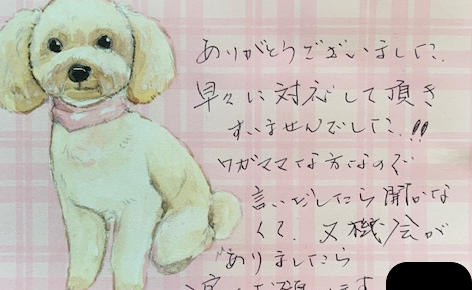 ありがとうございました.
早々に対応して頂き
すいませんでした.!!
ワガママな方なので
言いだしたら聞かな
くて. 又機会が
ありましたら